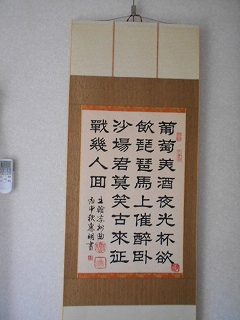 葡萄美酒夜光杯欲
飲琵琶馬上催醉卧
沙場君莫笑古來征
戰幾人回
王翰涼州曲
丙申秋
書